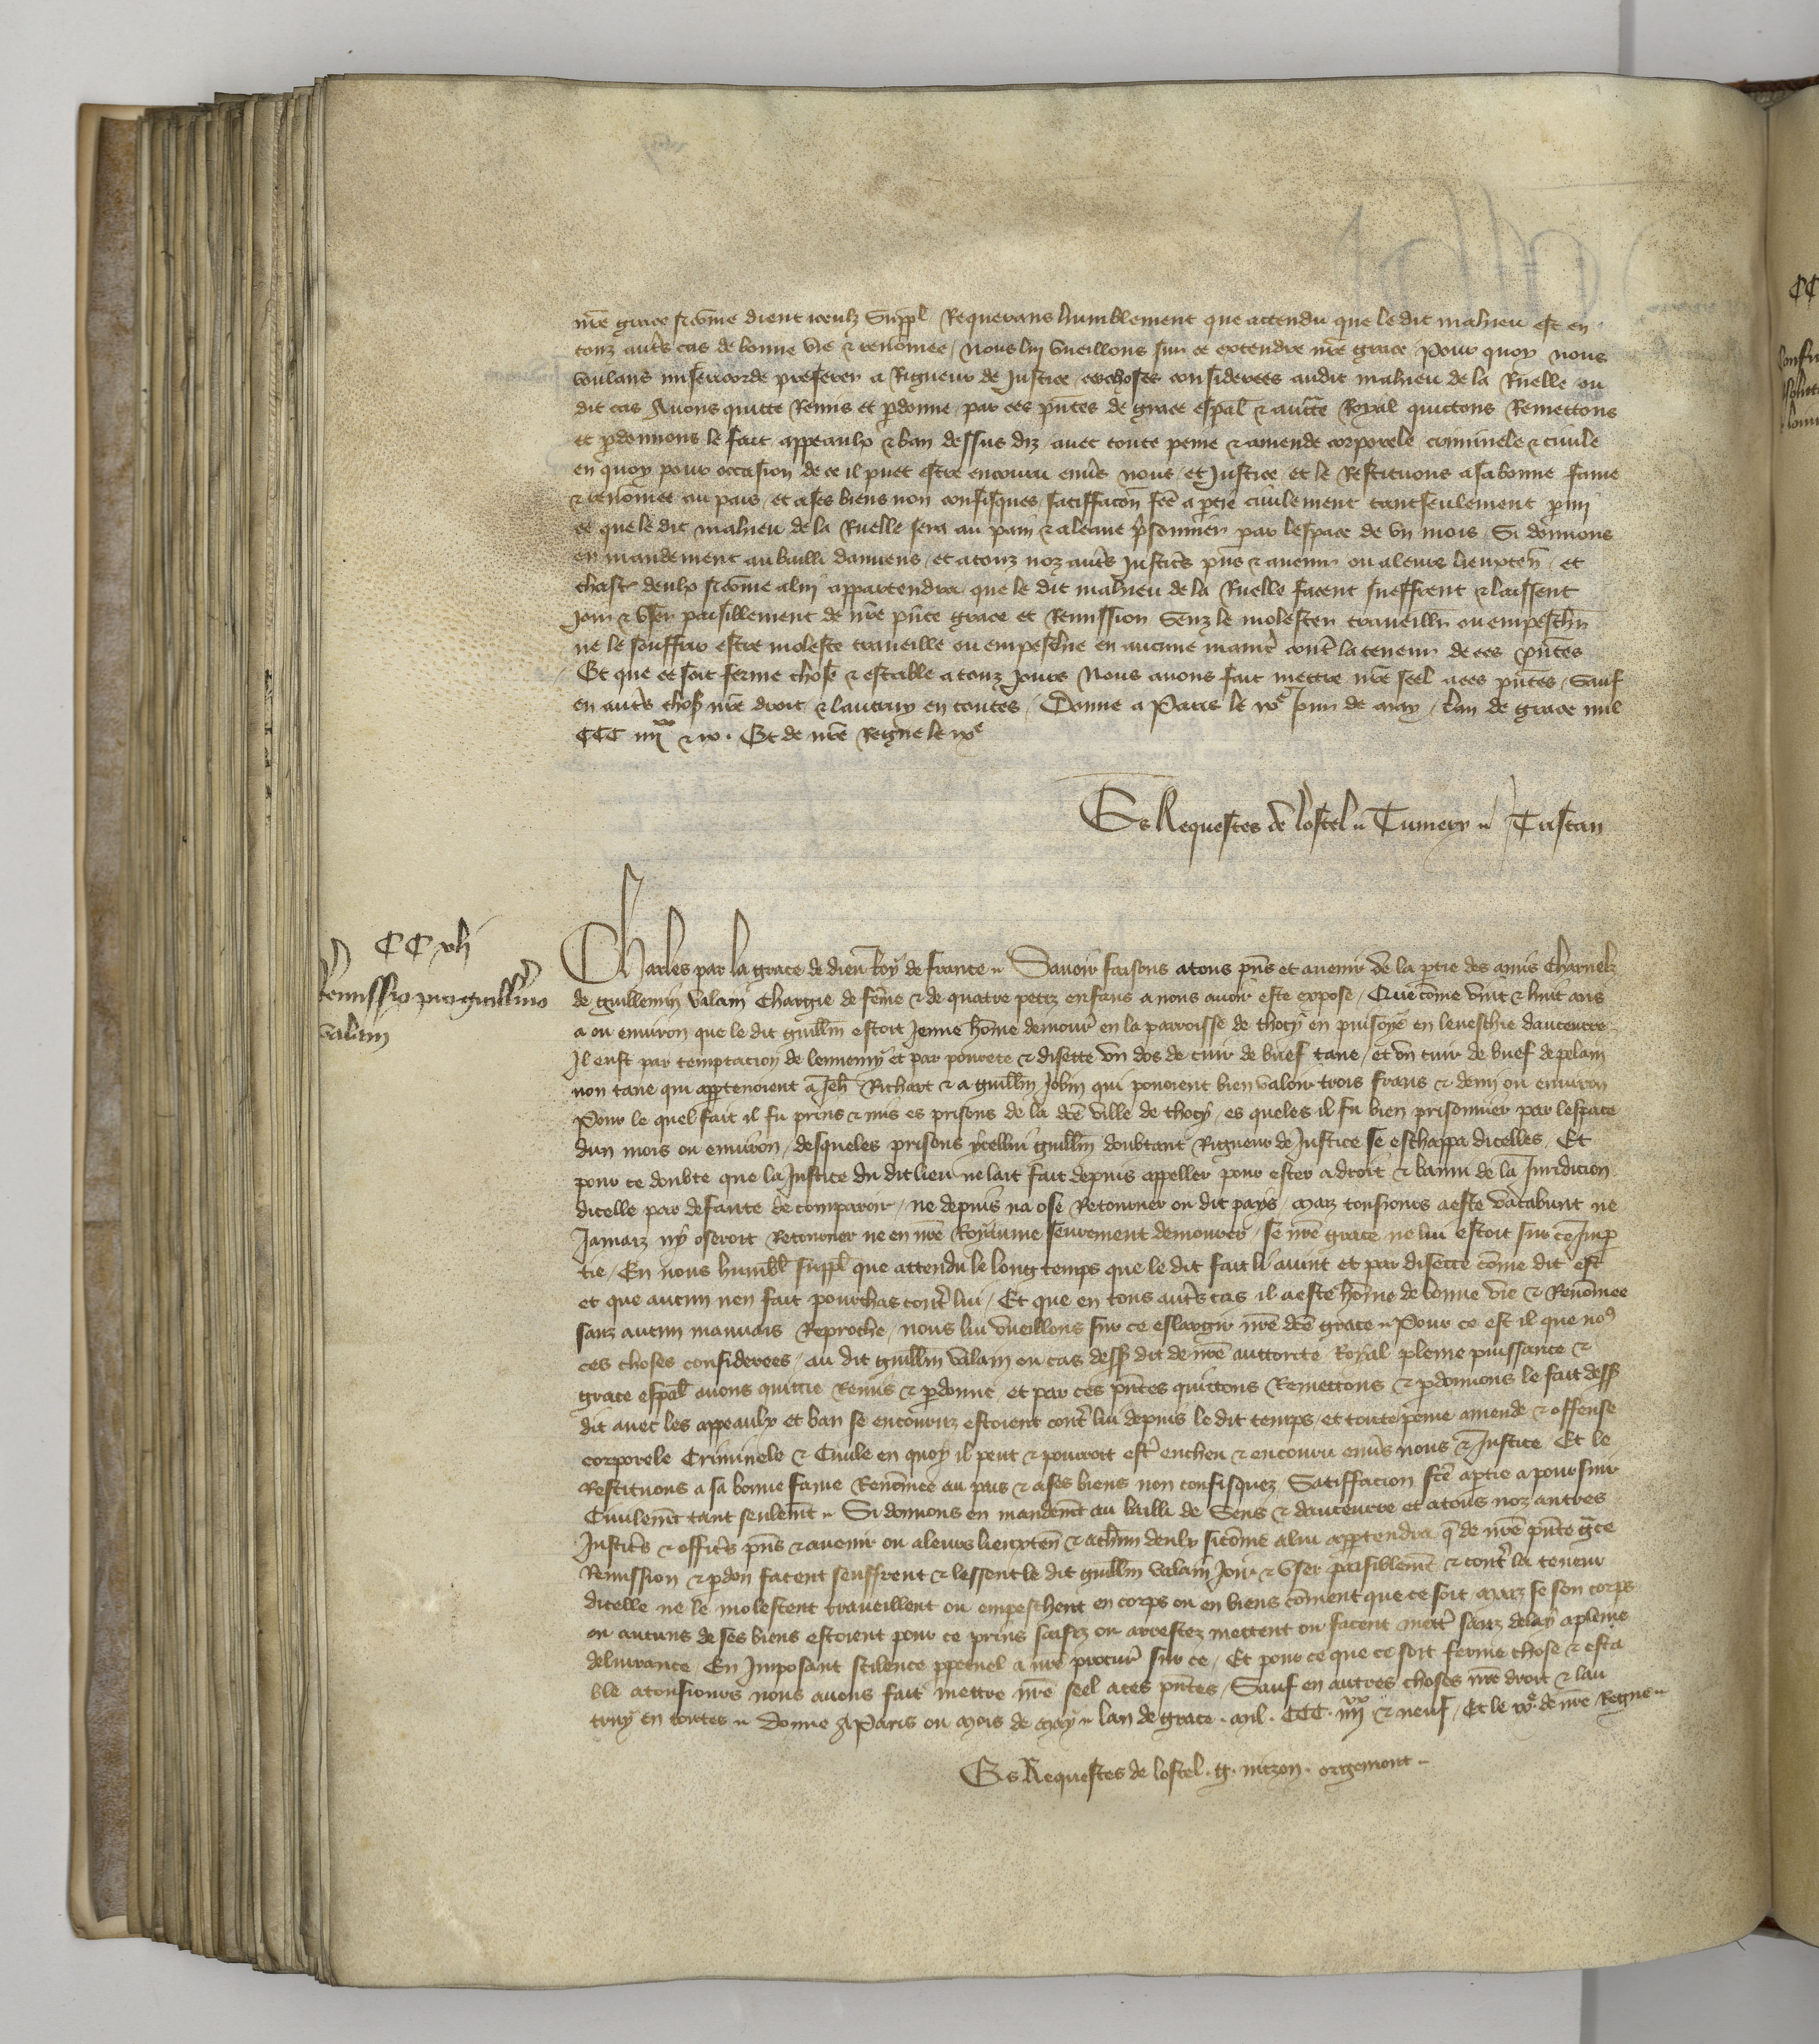 nr̄e grace si cōme dient iceulz Suppl̄ Requerans humblement que attendu que le dit mahieu est en
touz aut̄s cas de bonne vie & renōmee / nous lui vueillons sur ce extendre nr̄e grace Pour quoy nous
voulans misericorde preferer a Rigueur de Justice / ces choses considerees audit mahieu de la Ruelle ou
dit cas Auons quitte Remis et p̄donne / par ces pn̄tes de grace esp̄al & auct̄te Royal quictons Remettons
et p̄donnons le fait appeaulx & ban dessus diz auec toute peine & amende corporele criminele & ciuile
en quoy pour occasion de ce il puet estre encouru enūs nous / et Justice et le Restituons a sa bonne fame
& renōmee au pais / et a ses biens non confisques / satiffacōn fc̄e a p̄tie ciuilement tant seulement p̄mi
ce que le dit mahieu de la Ruelle sera au pain & a leaue p̄sonnier par lespace de vn mois / Si donnons
en mandement au bailli damiens / et a touz noz aut̄s justic̄s pn̄s & auenir ou a leurs lieuxten̄ / et
chascun deulx si cōme a lui appartendra / que le dit mahieu de la Ruelle facent sueffrent & laissent
joir & vser paisiblement de nr̄e pn̄te grace et Remission Senz le molester trauueillir ou empeschir
ne le souffrir estre moleste traueille ou empeschie en aucune manīe cont̄ la teneur de ces pn̄tes
Et que ce soit ferme chose & estable a touz jours Nous auons fait mettre nr̄e seel a ces pn̄tes / Sauf
en aut̄s chos̄ nr̄e droit & lautruy en toutes / Donne a Paris le xxe Jour de may / lan de grace mil
CCC iiiixx & ix . Et de nr̄e Regne le ixe
Es Requestes de lostel " Tumery " Tristan
CC xlj
Remissio pro guill̄mo
valain
Charles par la grace de dieu Roy de france " Sauoir faisons a tous pn̄s et auenir de la p̄tie des amis charnelz
de guillemin valain Chargie de fēme & de quatre petiz enfans a nous auoir este expose / Que cōme vint & huit ans
a ou enuiron que le dit guill̄m estoit Jeune hōme demour̄ en la parroisse de thocy en puisoye en leueschie daucuerre
Il eust par temptacion de lennemy et par pourete & disette vn dos de cuir de buef tane / et vn cuir de buef de pelain
non tane qui app̄tenoient a Jeh̄ Richart & a guill̄m Jobin qui pouoient bien valoir trois frans & demi ou enuiron
Pour le quel fait il fu prins & mis es prisons de la dc̄e ville de thocy / es queles il fu bien prisonnier par lespace
dun mois ou enuiron / desqueles prisons ycellui guill̄m doubtant Rigueur de Justice se eschappa dicelles / Et
pour ce doubte que la Justice du dit lieu ne lait fait depuis appeller pour ester a droit & banni de la Juridicion
dicelle par defaute de comparoir / ne depuis na ose Retourner ou dit pays / maiz tousiours a este vacabunt ne
Jamaiz ny oseroit Retourner ne en nr̄e Royaume seurement demourer / se nr̄e grace ne lui estoit sur ce Imp̄
tie / En nous humbl̄ suppl̄ que attendu le long temps que le dit fait li auint et par disette cōme dit est
et que aucun nen fait pourchas cont̄ lui / Et que en tous aut̄s cas il a este hōme de bonne vie & Renōmee
sanz aucun mauuais Reproche / nous lui vueillons sur ce eslargir nr̄e dc̄e grace " Pour ce est il que no9
ces choses considerees / au dit guill̄m valain ou cas dess̄ dit de nr̄e auttorite Royal pleine puissance &
grace esp̄al auons quittie Remis & p̄donne et par ces pn̄tes quittons Remettons & p̄donnons le fait dess̄
dit auec les appeaulx et ban se encouruz estoient cont̄ lui depuis le dit temps / et toute peine amende & offense
corporele Criminele & Ciuile en quoy il peut & pourroit est̄ encheu & encouru enūs nous & Justice Et le
Restituons a sa bonne fame Renōmee au pais & a ses biens non confisquez / Satiffacion fc̄e a p̄tie a poursuir
Ciuilem̄t tant seulem̄t " Si donnons en mandem̄t au bailli de Sens & daucuerre et a tous noz autres
Justic̄s & offic̄s pn̄s & auenir ou a leurs lieuxten̄ & a ch̄un deulx si cōme a lui app̄tendra q̄ de nr̄e pn̄te gr̄ce
Remission & p̄don facent seuffrent & lessent le dit guill̄m valain Joir & vser paisiblem̄t & cont̄ la teneur
dicelle ne le molestent traueillent ou empeschent en corps ou en biens cōment que ce soit maiz se son corps
ou aucuns de ses biens estoient pour ce prins saisiz ou arrestez mettent ou facent mett̄ sanz delay a plaine
deliurance / En Imposant scilence p̄petuel a nr̄e procur̄ sur ce / Et pour ce que ce soit ferme chose & esta
ble a tousiours nous auons fait mettre nr̄e seel a ces pn̄tes / Sauf en autres choses nr̄e droit & lau
truy en toutes " Donne A Paris ou mois de may " lan de grace . mil . CCC . iiiixx & neuf / Et le ixe de nr̄e Regne "
Es Requestes de lostel . g . nitzon . orgemont "